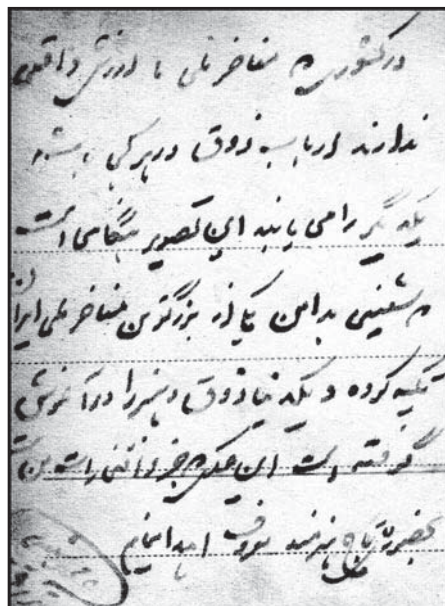 در کشوری که مفاخر ملی با ارزش واقعی
ندارند ارباب ذوق در هر کجا باشند
یکدیگر را می یابند این تصویر هنگامی است
که شخصی به دامن یکی از بزرگترین مفاخر ملی ایران
تکیه کرده و یکدنیا ذوق و هنر را در آغوش
گرفته است این عکس جز و است من
بحضرت تاج هنرمند معروف اهدا می نمایم